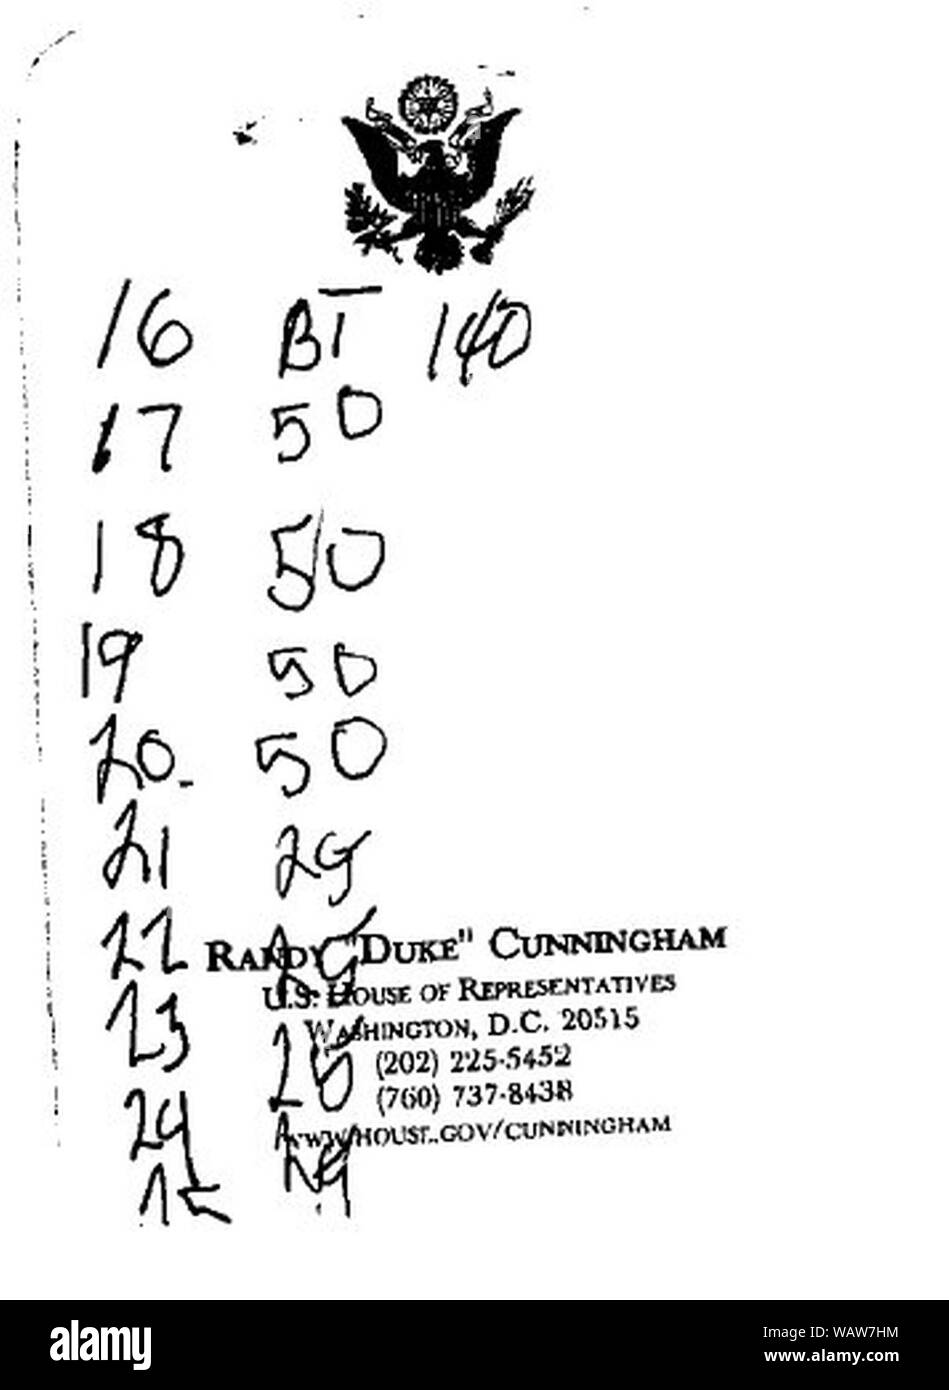 16 BT 140
17 50
18 50
19 50
20 50
21 25
22 25
RANDY "DUKE" CUNNINGHAM
U.S. HOUSE OF REPRESENTATIVES
WASHINGTON, D.C. 20515
23 25
(202) 225-5452
(760) 737-8438
24
WWW.HOUSE.GOV/CUNNINGHAM
25
alamy
Image ID: WAW7HM
www.alamy.com